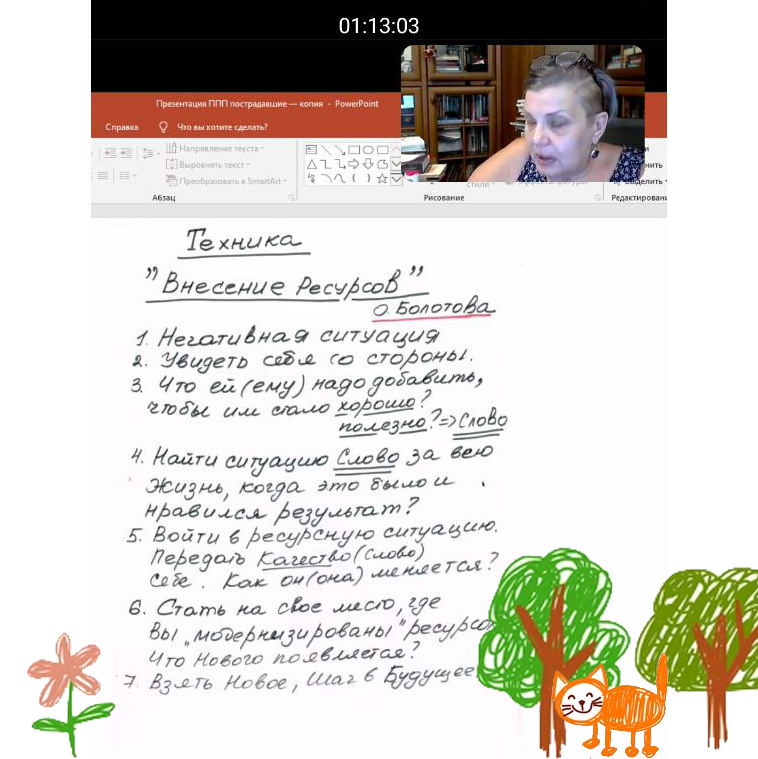 01:13:03
Презентация ППП пострадавшие — копия - PowerPoint
Справка
Что вы хотите сделать?
Направление текста
Выровнять текст
Преобразовать в SmartArt
Абзац
Рисование
Редактировани
Техника
"Внесение Ресурсов"
О. Болотова
1. Негативная ситуация
2. Увидеть себя со стороны.
3. Что ей (ему) надо добавить,
чтобы им стало хорошо?
полезно? => Слово
4. Найти ситуацию Слово за всю
жизнь, когда это было и
нравился результат?
5. Войти в ресурсную ситуацию.
Передать Качество (Слово)
себе. Как он (она) меняется?
6. Стать на свое место, где
Вы "модернизированы" ресурсо
Что Нового появляется?
7. Взять Новое, Шаг в Будущее